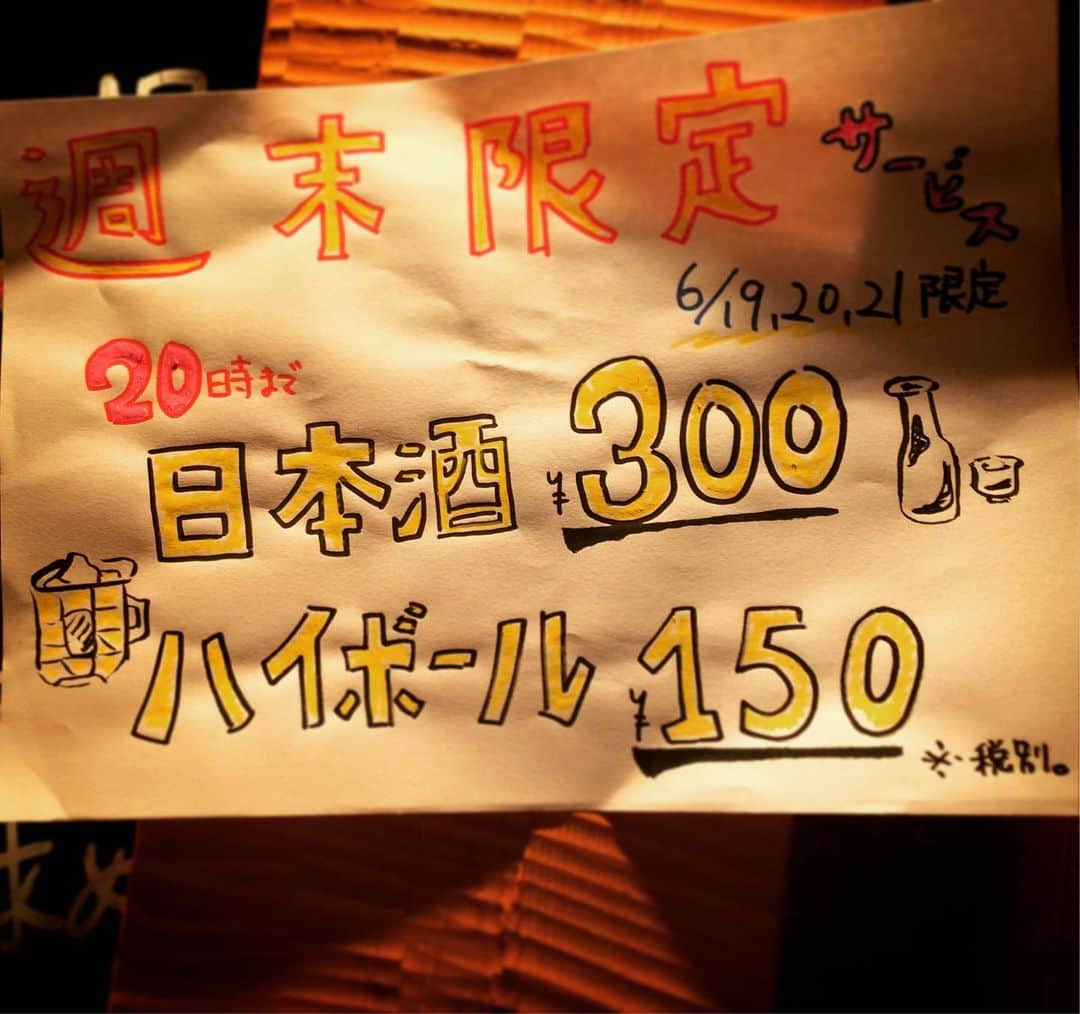 週末限定サービス
6/19,20,21限定
20時まで
日本酒 ¥300
ハイボール ¥150
※税別。
求め